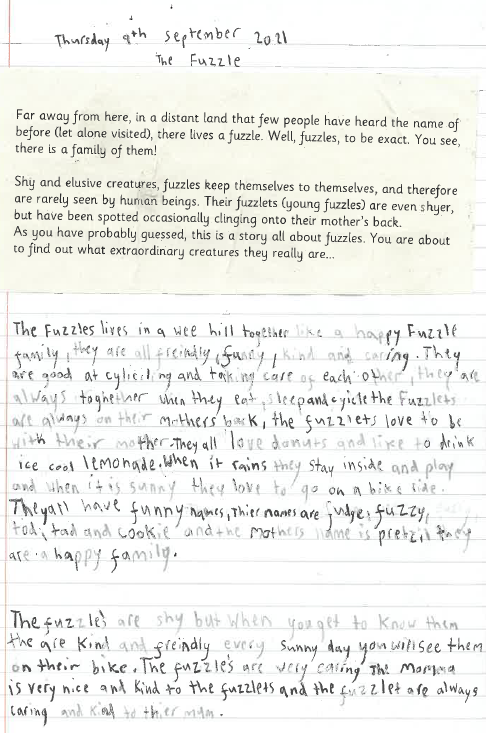 Thursday 9th september 2021
The Fuzzle
Far away from here, in a distant land that few people have heard the name of
before (let alone visited), there lives a fuzzle. Well, fuzzles, to be exact. You see,
there is a family of them!
Shy and elusive creatures, fuzzles keep themselves to themselves, and therefore
are rarely seen by human beings. Their fuzzlets (young fuzzles) are even shyer,
but have been spotted occasionally clinging onto their mother's back.
As you have probably guessed, this is a story all about fuzzles. You are about
to find out what extraordinary creatures they really are...
The Fuzzles lives in a wee hill together like a happy Fuzzle
family, they are all freindly, funny, kind and caring. They
are good at cyliciling and taking care of each other, they are
always toghether when they eat, sleep and cyicle the Fuzzlets
are always on their mothers back, the fuzzlets love to be
with their mother. They all love donuts and like to drink
ice cool lemonade. When it rains they stay inside and play
and when it is sunny they love to go on a bike ride.
They all have funny names, Thier names are fudge, fuzzy,
tod, tad and cookie and the mothers name is pretzil they
are a happy family.
The fuzzle's are shy but when you get to know them
the are kind and freindly every sunny day you will see them
on their bike. The fuzzle's are very caring The Momma
is very nice and kind to the fuzzlets and the fuzzlet are always
caring and kind to thier mum.